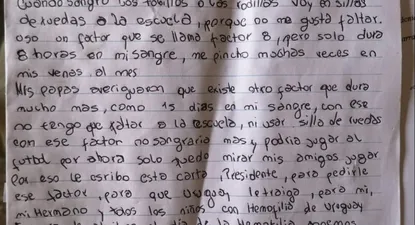 Cuando sangro los tobillos o las rodillas voy en sillas
de ruedas a la escuela, porque no me gusta faltar.
uso un factor que se llama factor 8, pero solo dura
8 horas en mi sangre, me pincho muchas veces en
mis venas al mes
Mis papas averiguaron que existe otro factor que dura
mucho mas, como 15 dias en mi sangre, con ese
no tengo que faltar a la escuela, ni usar silla de ruedas
con ese factor no sangraria mas y podria jugar al
futbol por ahora solo puedo mirar mis amigos jugar
Por eso le escribo esta carta, Presidente, para pedirle
ese factor, para que Uruguay le traiga, para mi,
mi Hermano y todos los niños con Hemofilia de Uruguay
el dia de la Hemofilia